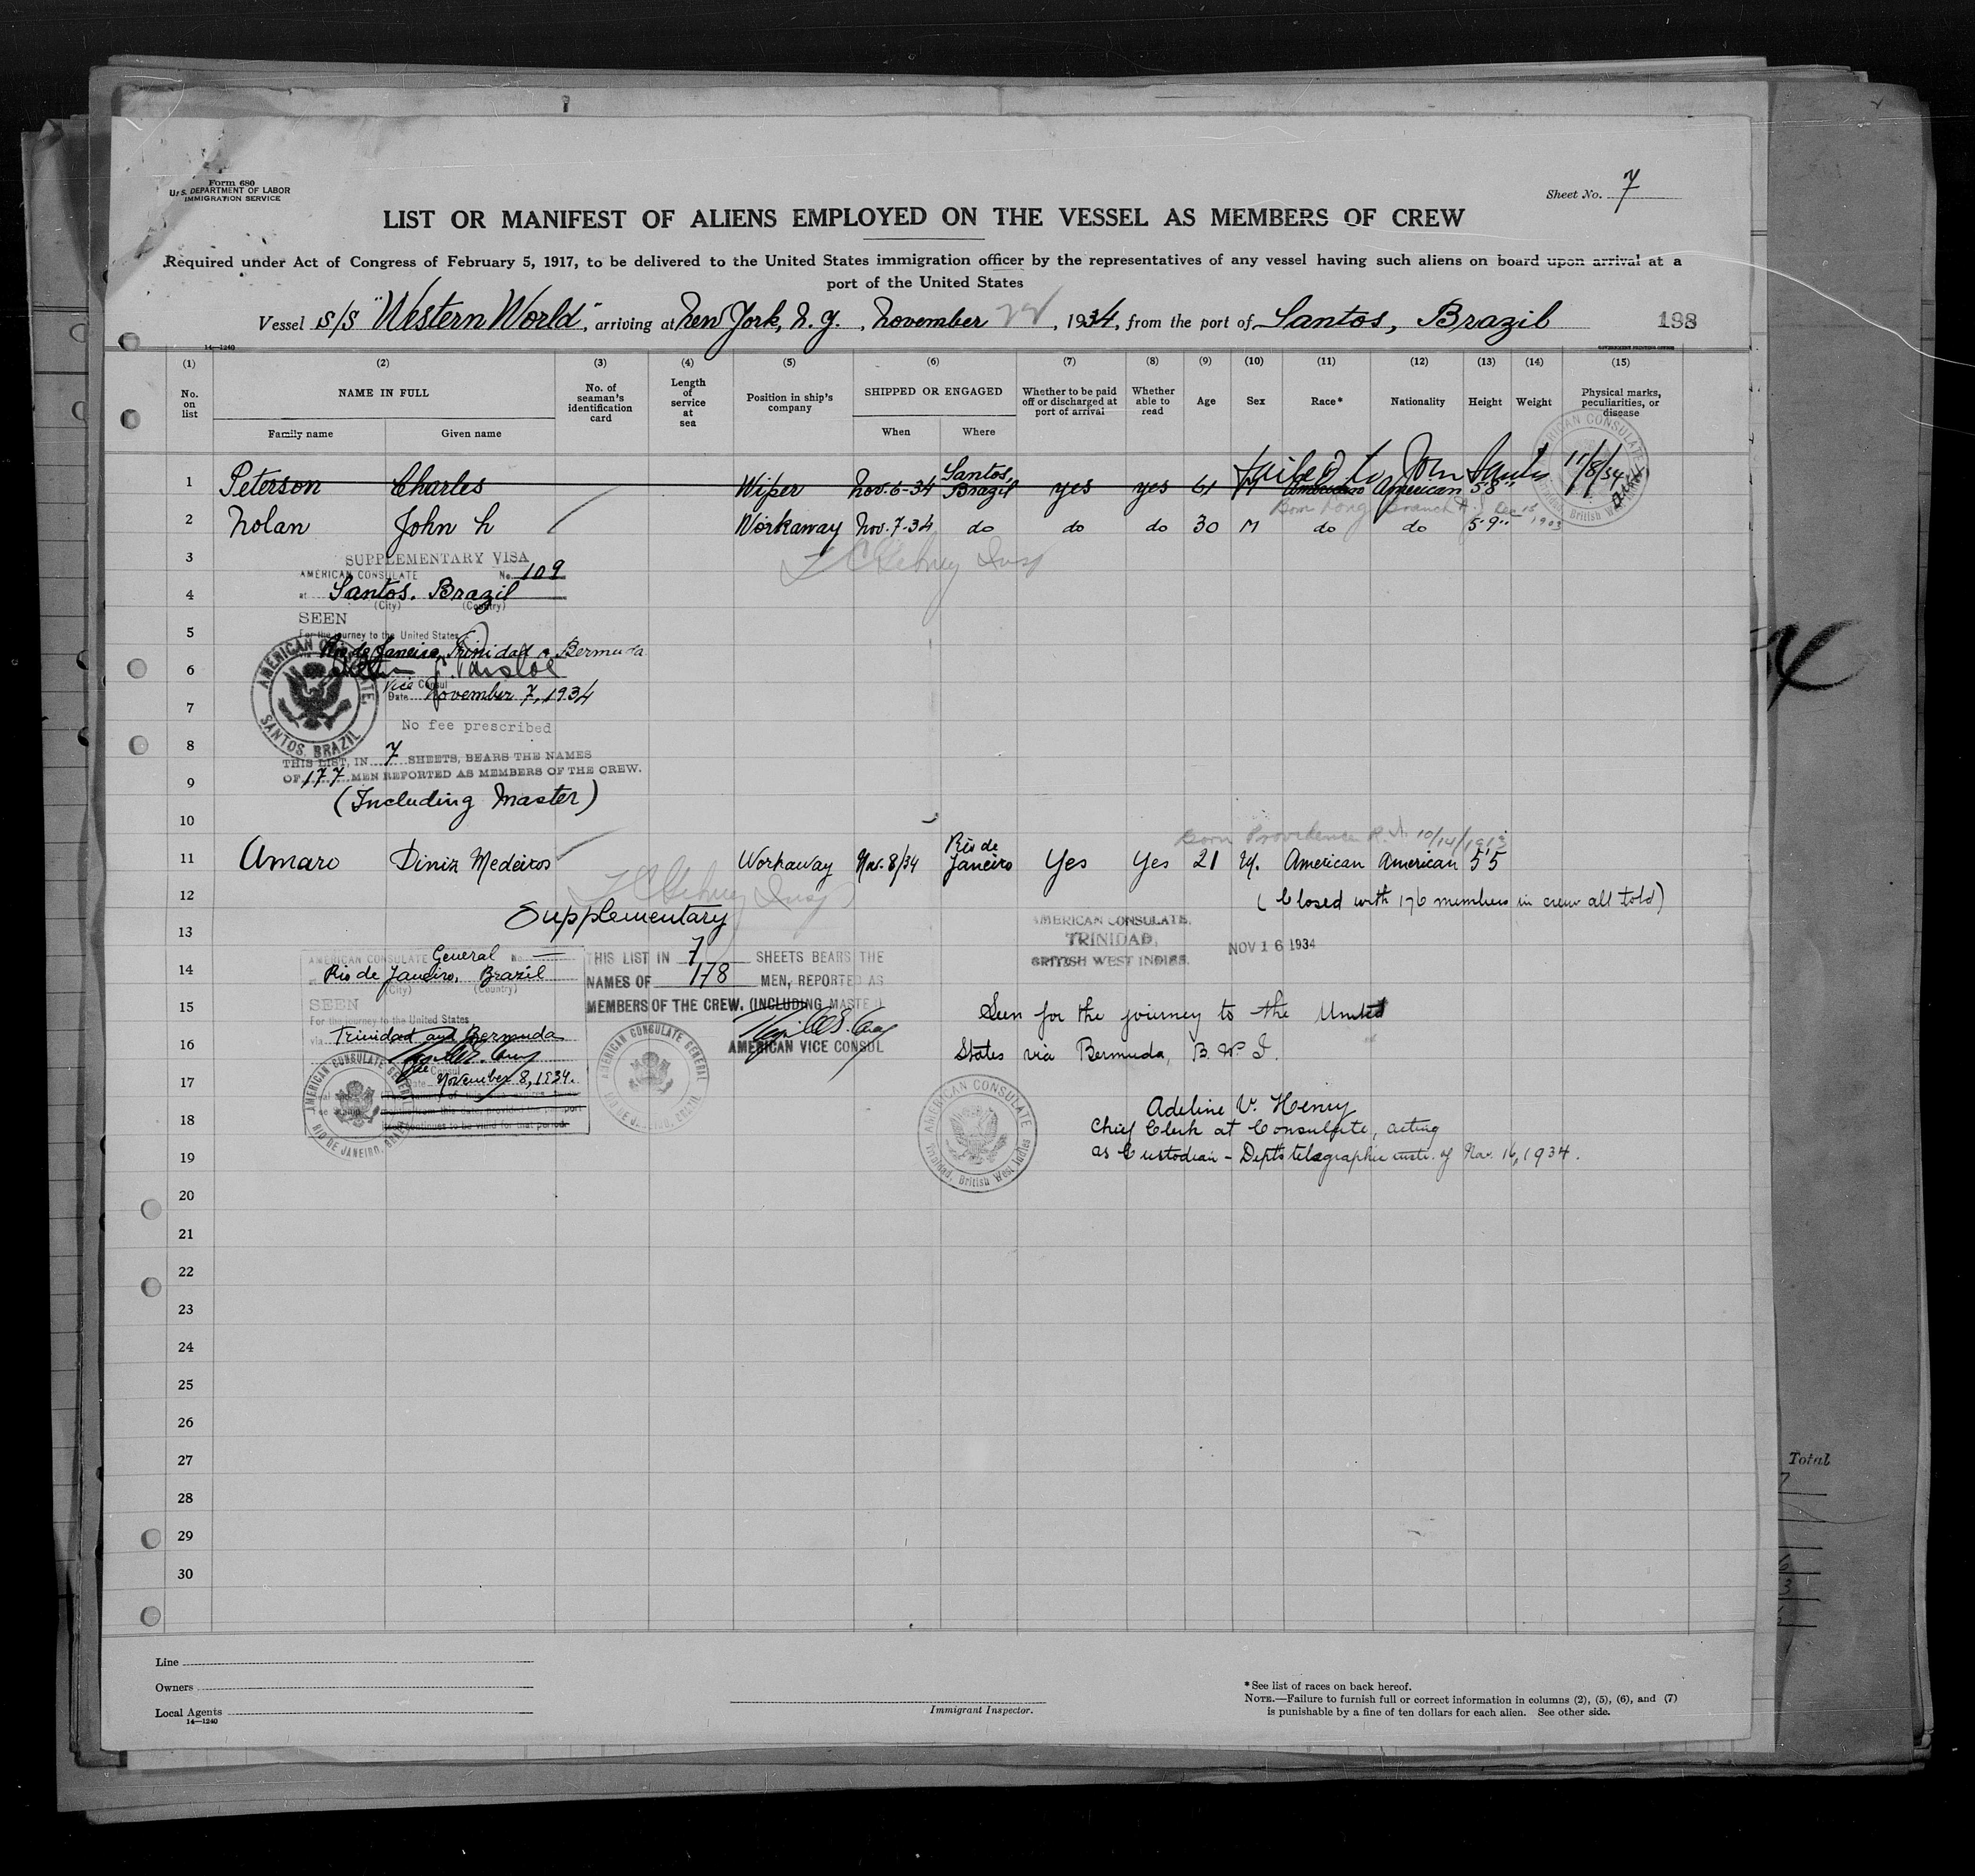 Form 680
U. S. DEPARTMENT OF LABOR
IMMIGRATION SERVICE
Sheet No. 7
LIST OR MANIFEST OF ALIENS EMPLOYED ON THE VESSEL AS MEMBERS OF CREW
Required under Act of Congress of February 5, 1917, to be delivered to the United States immigration officer by the representatives of any vessel having such aliens on board upon arrival at a
port of the United States
Vessel S/S "Western World", arriving at New York, N.Y., November, 1934, from the port of Santos, Brazil 198
14—1240
(1) (2) (3) (4) (5) (6) (7) (8) (9) (10) (11) (12) (13) (14) (15)
No. on list NAME IN FULL Family name Given name No. of seaman's identification card Length of service at sea Position in ship's company SHIPPED OR ENGAGED When Where Whether to be paid off or discharged at port of arrival Whether able to read Age Sex Race* Nationality Height Weight Physical marks, peculiarities, or disease
Failed to Join Santos 11/8/34
1 Peterson Charles Wiper Nov. 6-34 Santos, Brazil yes yes 61 M American American 5'8"
Born Long Branch N.J. Dec 1903
2 Nolan John H Workaway Nov. 7-34 do do do 30 M do do 5'9"
3 SUPPLEMENTARY VISA
AMERICAN CONSULATE No. 109
4 at Santos, Brazil
(City) (Country)
SEEN
5 For the journey to the United States
Rio de Janeiro, Trinidad & Bermuda
6
Vice Consul
7 Date November 7, 1934
No fee prescribed
AMERICAN CONSULATE SANTOS, BRAZIL
8 THIS LIST, IN 7 SHEETS, BEARS THE NAMES
9 OF 177 MEN REPORTED AS MEMBERS OF THE CREW.
(Including Master)
10
Born Providence R.I. 10/14/1913
11 Amaro Diniz Medeiros Workaway Nov. 8/34 Rio de Janeiro Yes Yes 21 M. American American 5'5
12 (Closed with 176 members in crew all told)
Supplementary
13 AMERICAN CONSULATE,
TRINIDAD,
BRITISH WEST INDIES.
NOV 16 1934
AMERICAN CONSULATE General No. —
14 at Rio de Janeiro, Brazil
(City) (Country)
SEEN
15 For the journey to the United States
via Trinidad and Bermuda
16
Vice Consul
17 Date November 8, 1934.
THIS LIST IN 7 SHEETS BEARS THE
NAMES OF 178 MEN, REPORTED AS
MEMBERS OF THE CREW. (INCLUDING MASTER)
AMERICAN VICE CONSUL
AMERICAN CONSULATE GENERAL RIO DE JANEIRO, BRAZIL
AMERICAN CONSULATE GENERAL RIO DE JANEIRO, BRAZIL
Seen for the journey to the United
States via Bermuda, B.W.I.
AMERICAN CONSULATE Trinidad, British West Indies
18 Adeline V. Henry
Chief Clerk at Consulate, acting
19 as Custodian – Dept's telegraphic instr. of Nov. 16, 1934.
20
21
22
23
24
25
26
27
28
29
30
Total
Line
Owners
Local Agents
14—1240
Immigrant Inspector.
*See list of races on back hereof.
NOTE.—Failure to furnish full or correct information in columns (2), (5), (6), and (7)
is punishable by a fine of ten dollars for each alien. See other side.